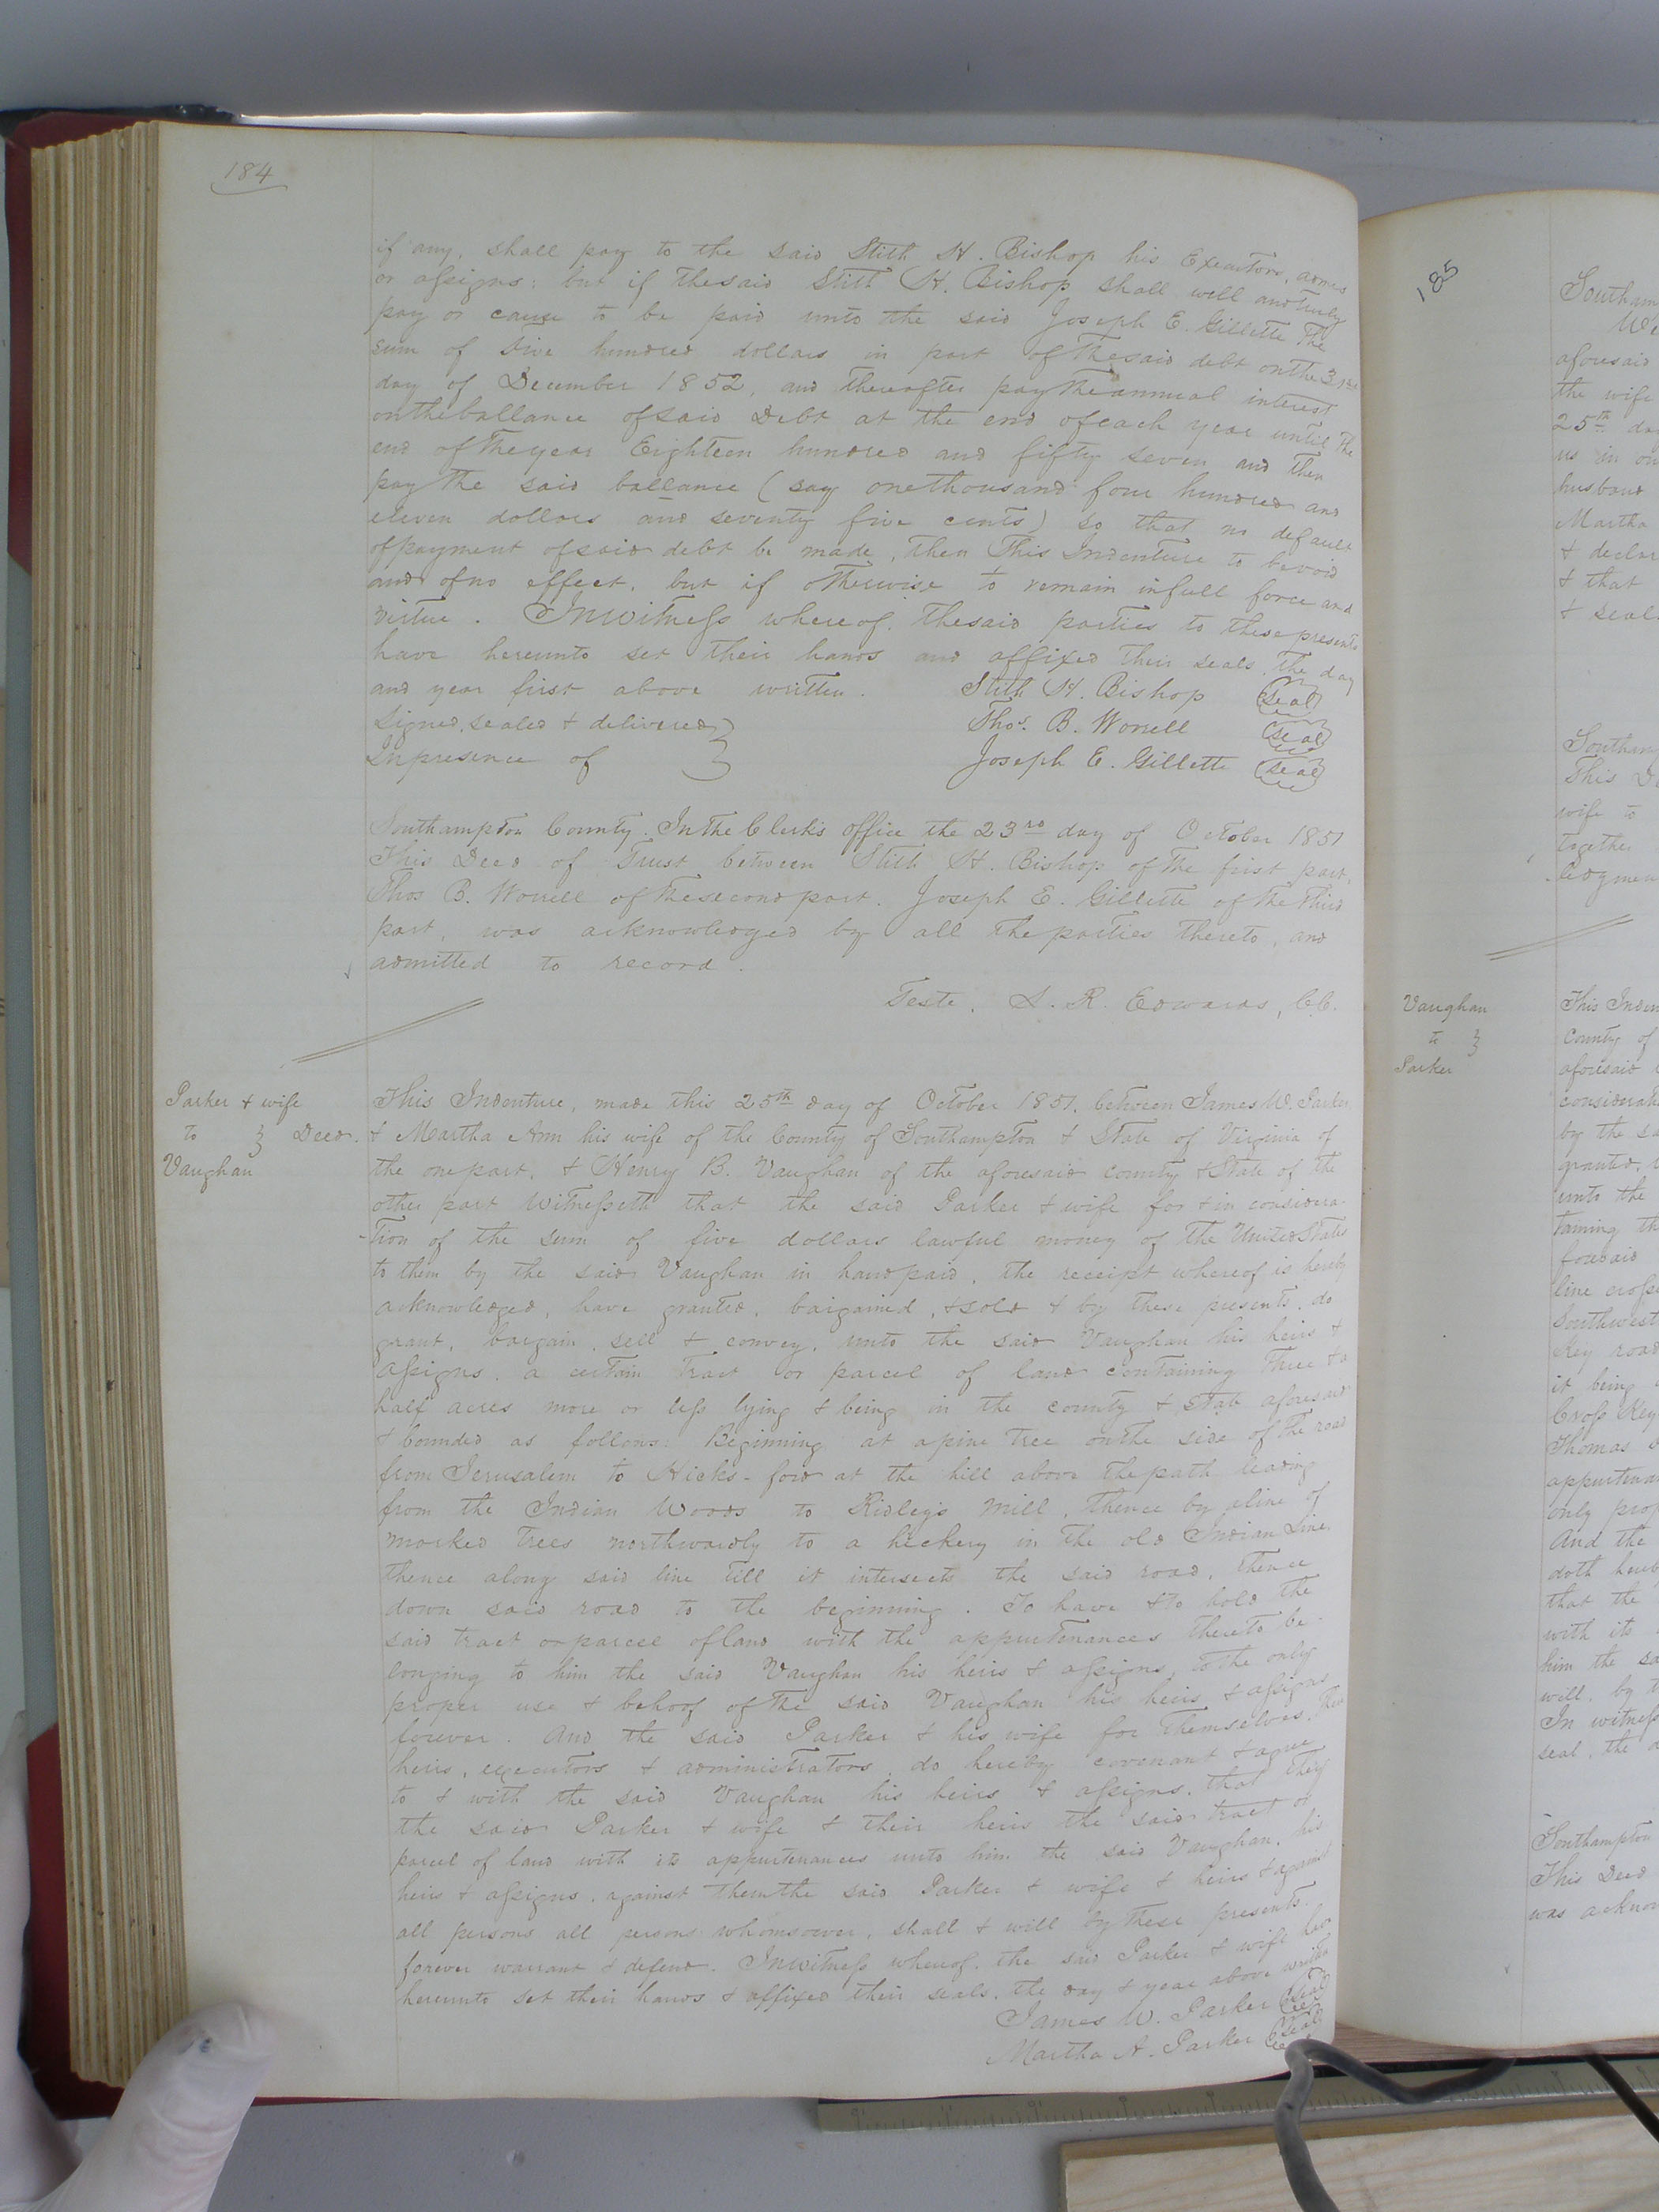 184
if any, shall pay to the said Stith H. Bishop his Executors, admrs
or assigns; but if the said Stith H. Bishop shall well and truly
pay or cause to be paid unto the said Joseph E. Gillette the
sum of five hundred dollars in part of the said debt on the 31st
day of December 1852, and thereafter pay the annual interest
on the ballance of said Debt at the end of each year until the
end of the year Eighteen hundred and fifty seven and then
pay the said ballance (say one thousand four hundred and
eleven dollars and seventy five cents) so that no default
of payment of said debt be made, then This Indenture to be void
and of no effect, but if otherwise to remain in full force and
virtue. In witness whereof. the said parties to these presents
have hereunto set their hands and affixed their seals, the day
and year first above written. Stith H. Bishop (seal)
Signed, sealed & delivered } Thos. B. Worrell (seal)
In presence of } Joseph E. Gillette (seal)
Southampton County. In the Clerk's office the 23rd day of October 1851
This Deed of Trust between Stith H. Bishop of the first part,
Thos B. Worrell of the second part. Joseph E. Gillette of the third
part, was acknowledged by all the parties thereto, and
admitted to record.
Teste, L. R. Edwards, C.C.
Parker & wife
to } Deed.
Vaughan
This Indenture, made this 25th day of October 1851, between James W. Parker
& Martha Ann his wife of the County of Southampton & State of Virginia of
the one part, & Henry B. Vaughan of the aforesaid county & State of the
other part Witnesseth that the said Parker & wife for & in considera-
-tion of the sum of five dollars lawful money of the United States
to them by the said Vaughan in hand paid, the receipt whereof is hereby
acknowledged, have granted, bargained, & sold & by these presents, do
grant, bargain, sell & convey, unto the said Vaughan his heirs &
assigns, a certain tract or parcel of land containing three & a
half acres more or less lying & being in the county & State aforesaid
& bounded as follows: Beginning at a pine tree on the side of the road
from Jerusalem to Hicks-ford at the hill above the path leading
from the Indian Woods to Ridley's Mill, thence by a line of
marked trees northwardly to a hickery in the old Indian Line.
thence along said line till it intersects the said road, thence
down said road to the beginning. To have & to hold the
said tract or parcel of land with the appurtenances thereto be-
longing to him the said Vaughan his heirs & assigns, to the only
proper use & behoof of the said Vaughan his heirs & assigns
forever. And the said Parker & his wife for themselves, their
heirs, executors & administrators, do hereby covenant & agree
to & with the said Vaughan his heirs & assigns, that they
the said Parker & wife & their heirs the said tract or
parcel of land with its appurtenances unto him the said Vaughan, his
heirs & assigns, against them the said Parker & wife & heirs & against
all persons all persons whomsoever, shall & will by these presents.
forever warrant & defend. In witness whereof, the said Parker & wife have
hereunto set their hands & affixed their seals, the day & year above written
James W. Parker (seal)
Martha A. Parker (seal)
185
Southam
We
aforesaid
the wife
25th day
us in ou
husband
Martha
& declar
& that
& seal
Southam
This De
wife to
together
ledgmen
Vaughan
to }
Parker
This Inden
County of
aforesaid
considerat
by the sa
granted,
unto the
taining th
foresaid
line crosse
Southwest
Key road
it being
Cross Key
Thomas
appurtenan
only prop
And the
doth hereb
that the
with its
him the sa
will, by t
In witness
seal, the d
Southampton
This Deed
was acknow